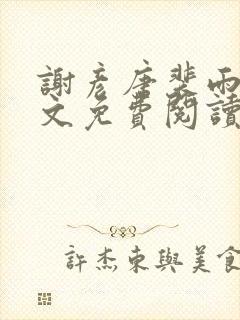 謝彥唐裴雨
文免費閱讀
許杰東與美食